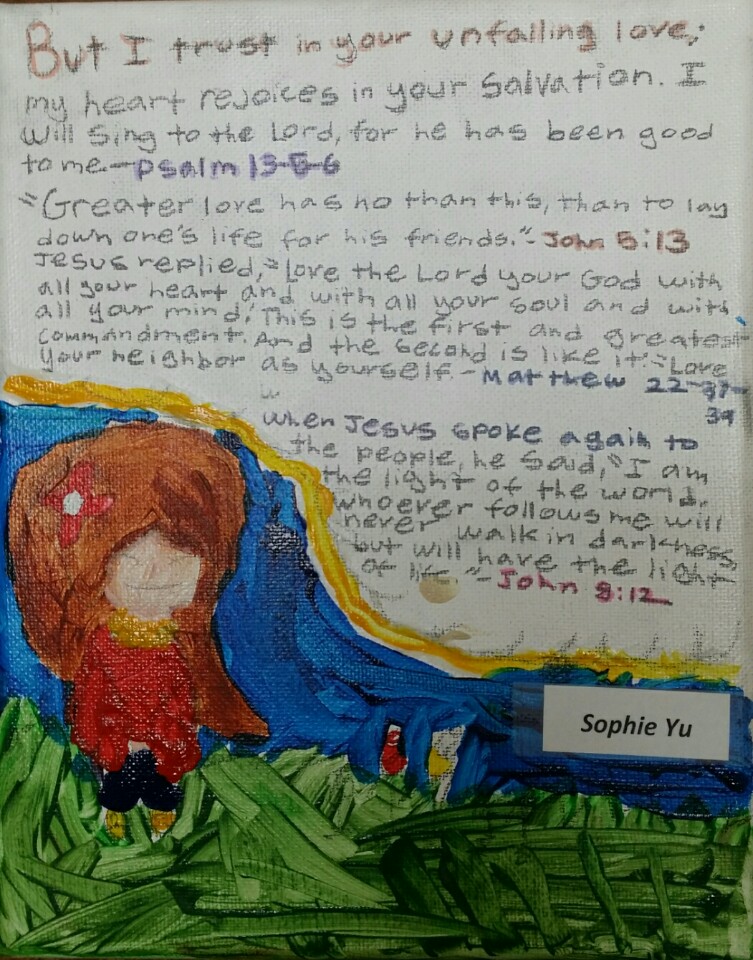 But I trust in your unfailing love;
my heart rejoices in your salvation. I
will sing to the Lord, for he has been good
to me—psalm 13-5-6
"Greater love has no than this, than to lay
down one's life for his friends."- John 5:13
Jesus replied, "Love the Lord your God with
all your heart and with all your soul and with
all your mind. This is the first and greatest
commandment. And the second is like it: "Love
your neighbor as yourself.- Matthew 22-37-
39
when Jesus spoke again to
the people, he said, "I am
the light of the world.
whoever follows me will
never walk in darkness
but will have the light
of life."- John 8:12
Sophie Yu